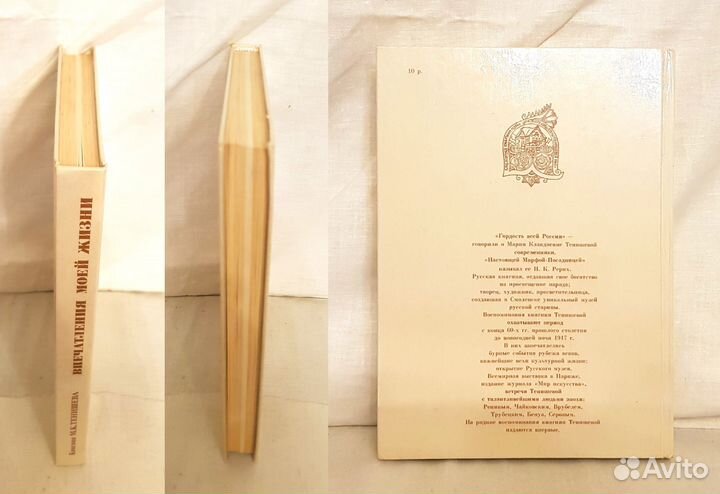 Княгиня М.К.ТЕНИШЕВА ВПЕЧАТЛЕНИЯ МОЕЙ ЖИЗНИ
10 р.
«Гордость всей России» —
говорили о Марии Клавдиевне Тенишевой
современники.
«Настоящей Марфой-Посадницей»
называл ее Н. К. Рерих.
Русская княгиня, отдавшая свое богатство
на просвещение народа;
творец, художник, просветительница,
создавшая в Смоленске уникальный музей
русской старины.
Воспоминания княгини Тенишевой
охватывают период
с конца 60-х гг. прошлого столетия
до новогодней ночи 1917 г.
В них запечатлелись
бурные события рубежа веков,
важнейшие вехи культурной жизни:
открытие Русского музея,
Всемирная выставка в Париже,
издание журнала «Мир искусства»,
встречи Тенишевой
с талантливейшими людьми эпохи:
Репиным, Чайковским, Врубелем,
Трубецким, Бенуа, Серовым.
На родине воспоминания княгини Тенишевой
издаются впервые.
Avito